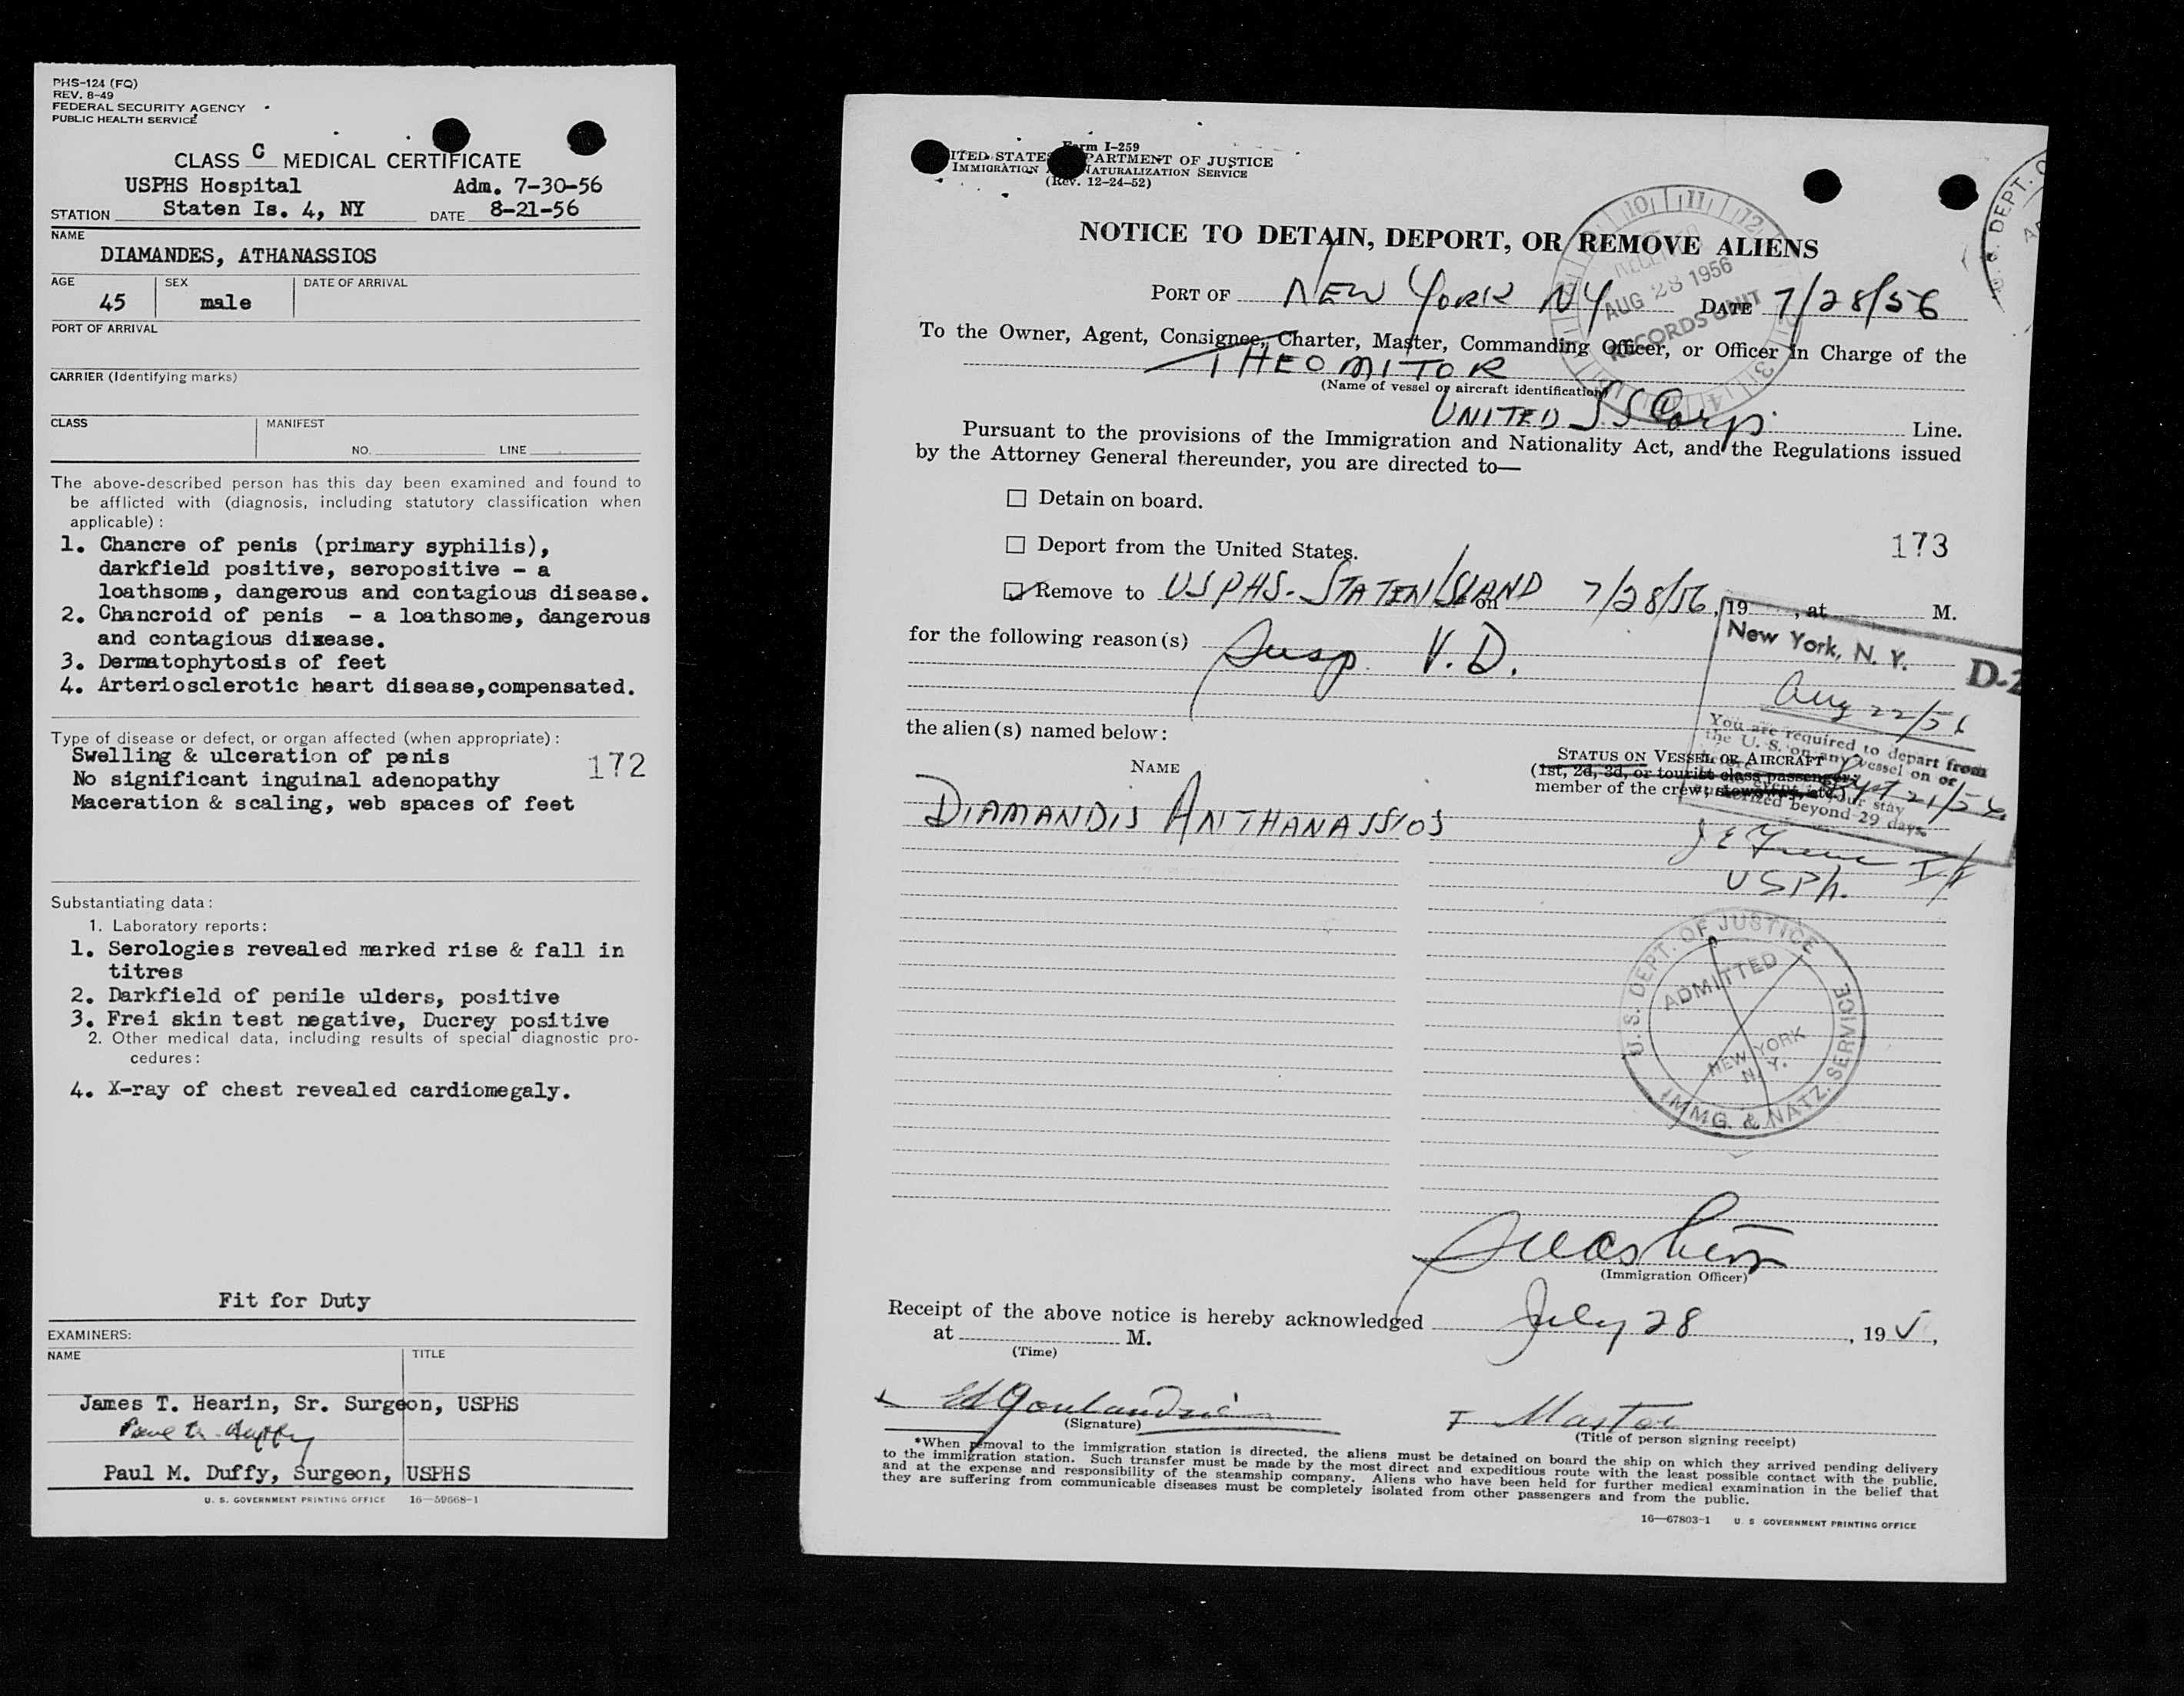 PHS-124 (FQ)
REV. 8-49
FEDERAL SECURITY AGENCY
PUBLIC HEALTH SERVICE
CLASS C MEDICAL CERTIFICATE
USPHS Hospital Adm. 7-30-56
STATION Staten Is. 4, NY DATE 8-21-56
NAME
DIAMANDES, ATHANASSIOS
AGE SEX DATE OF ARRIVAL
45 male
PORT OF ARRIVAL
CARRIER (Identifying marks)
CLASS MANIFEST
NO. LINE
The above-described person has this day been examined and found to
be afflicted with (diagnosis, including statutory classification when
applicable) :
1. Chancre of penis (primary syphilis),
darkfield positive, seropositive - a
loathsome, dangerous and contagious disease.
2. Chancroid of penis - a loathsome, dangerous
and contagious dixease.
3. Dermatophytosis of feet
4. Arteriosclerotic heart disease,compensated.
Type of disease or defect, or organ affected (when appropriate) :
Swelling & ulceration of penis
No significant inguinal adenopathy 172
Maceration & scaling, web spaces of feet
Substantiating data :
1. Laboratory reports :
1. Serologies revealed marked rise & fall in
titres
2. Darkfield of penile ulders, positive
3. Frei skin test negative, Ducrey positive
2. Other medical data, including results of special diagnostic pro-
cedures :
4. X-ray of chest revealed cardiomegaly.
Fit for Duty
EXAMINERS:
NAME TITLE
James T. Hearin, Sr. Surgeon, USPHS
Paul M. Duffy, Surgeon, USPHS
U. S. GOVERNMENT PRINTING OFFICE 16—59668-1
Form I-259
ITED STATES PARTMENT OF JUSTICE
IMMIGRATION NATURALIZATION SERVICE
(Rev. 12-24-52)
NOTICE TO DETAIN, DEPORT, OR REMOVE ALIENS
RECEIVED
AUG 28 1956
RECORDS UNIT
PORT OF NEW YORK NY DATE 7/28/56
To the Owner, Agent, Consignee, Charter, Master, Commanding Officer, or Officer in Charge of the
THEOMITOR
(Name of vessel or aircraft identification)
UNITED S S Corp. Line.
Pursuant to the provisions of the Immigration and Nationality Act, and the Regulations issued
by the Attorney General thereunder, you are directed to—
Detain on board.
Deport from the United States. 173
Remove to USPHS-STATEN ISLAND on 7/28/56, 19 , at M.
for the following reason(s) Susp. V.D.
New York, N. Y. D-2
Aug 22/56
You are required to depart from
the U. S. on any vessel on or
Sept 21/56
your stay
authorized beyond 29 days.
the alien(s) named below :
NAME
STATUS ON VESSEL OR AIRCRAFT
(1st, 2d, 3d, or tourist class passenger;
member of the crew; stowaway, etc.)
DIAMANDIS ANTHANASSIOS
USPh.
U. S. DEPT. OF JUSTICE
ADMITTED
NEW YORK
N. Y.
IMMG. & NATZ. SERVICE
(Immigration Officer)
Receipt of the above notice is hereby acknowledged July 28, 19
at M.
(Time)
Master
(Signature) (Title of person signing receipt)
*When removal to the immigration station is directed, the aliens must be detained on board the ship on which they arrived pending delivery
to the immigration station. Such transfer must be made by the most direct and expeditious route with the least possible contact with the public,
and at the expense and responsibility of the steamship company. Aliens who have been held for further medical examination in the belief that
they are suffering from communicable diseases must be completely isolated from other passengers and from the public.
16—67803-1 U. S GOVERNMENT PRINTING OFFICE
U. S. DEPT. O